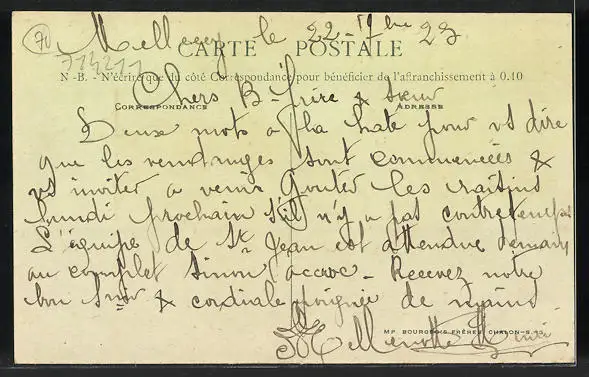 70
Mellecey le 22-9bre 23
CARTE POSTALE
714211
N.-B. - N'écrire que du côté Correspondance pour bénéficier de l'affranchissement à 0.10
Chers B-frère & sœur
CORRESPONDANCE ADRESSE
Deux mots à la hate pour vs dire
que les vendanges sont commencées &
vs inviter a venir gouter les raisins
Lundi prochain s'il n'y a pas contretemps
L'équipe de St Jean est attendue demain
au complet sinon accroc - Recevez notre
bon & cordiale poignée de mains
MP. BOURGEOIS FRÈRES, CHALON-S-S.